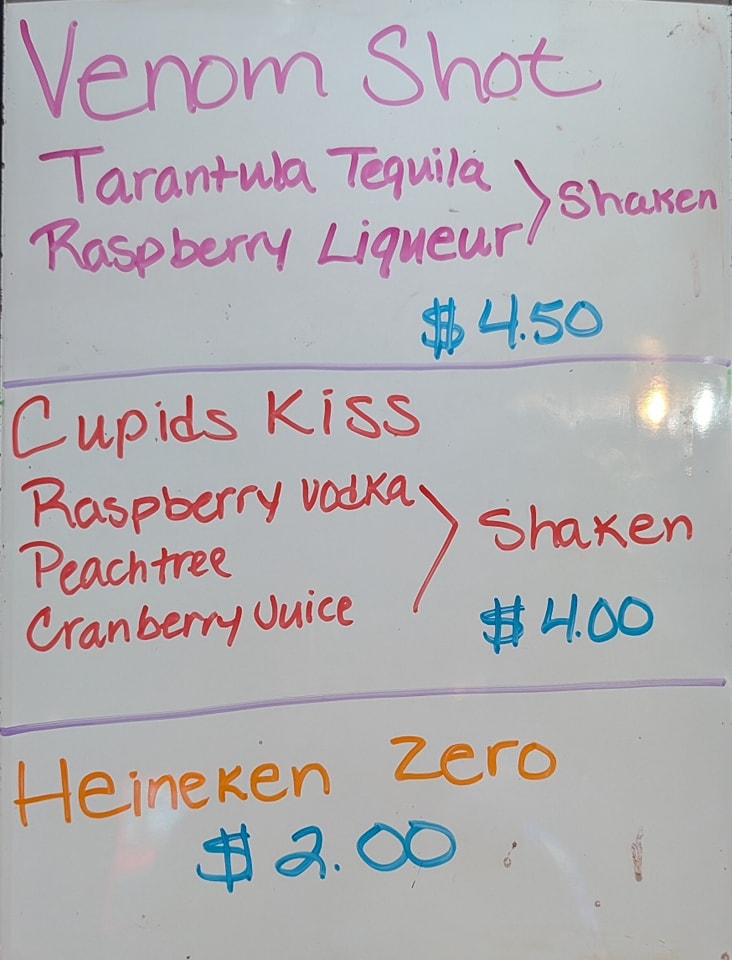 Venom Shot
Tarantula Tequila
Raspberry Liqueur
Shaken
$4.50
Cupids Kiss
Raspberry Vodka
Peachtree
Cranberry Juice
Shaken
$4.00
Heineken Zero
$2.00